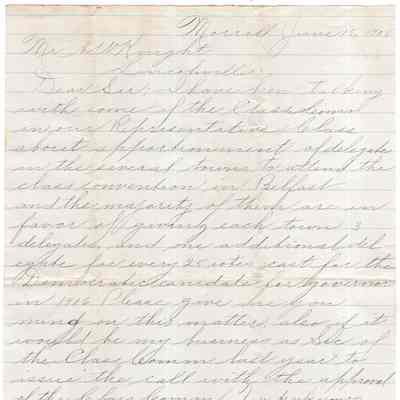 Morrill June 18, 1908
Mr A P Knight
Lincolnville
Dear Sir; I have been talking
with some of the Class Comm
in our Representative Class
about apportionment of delegates
in the several towns to attend the
class convention in Belfast
and the majority of them are in
favor of giving each town 3
delegates, and one additional del
egate for every 25 votes cast for the
Democratic canidate for Governor
in 1906. Please give me your
mind on this matter, also if it
would be my business as Sec of
the Class Comm last year to
issue the call with the approval
of the Class Comm